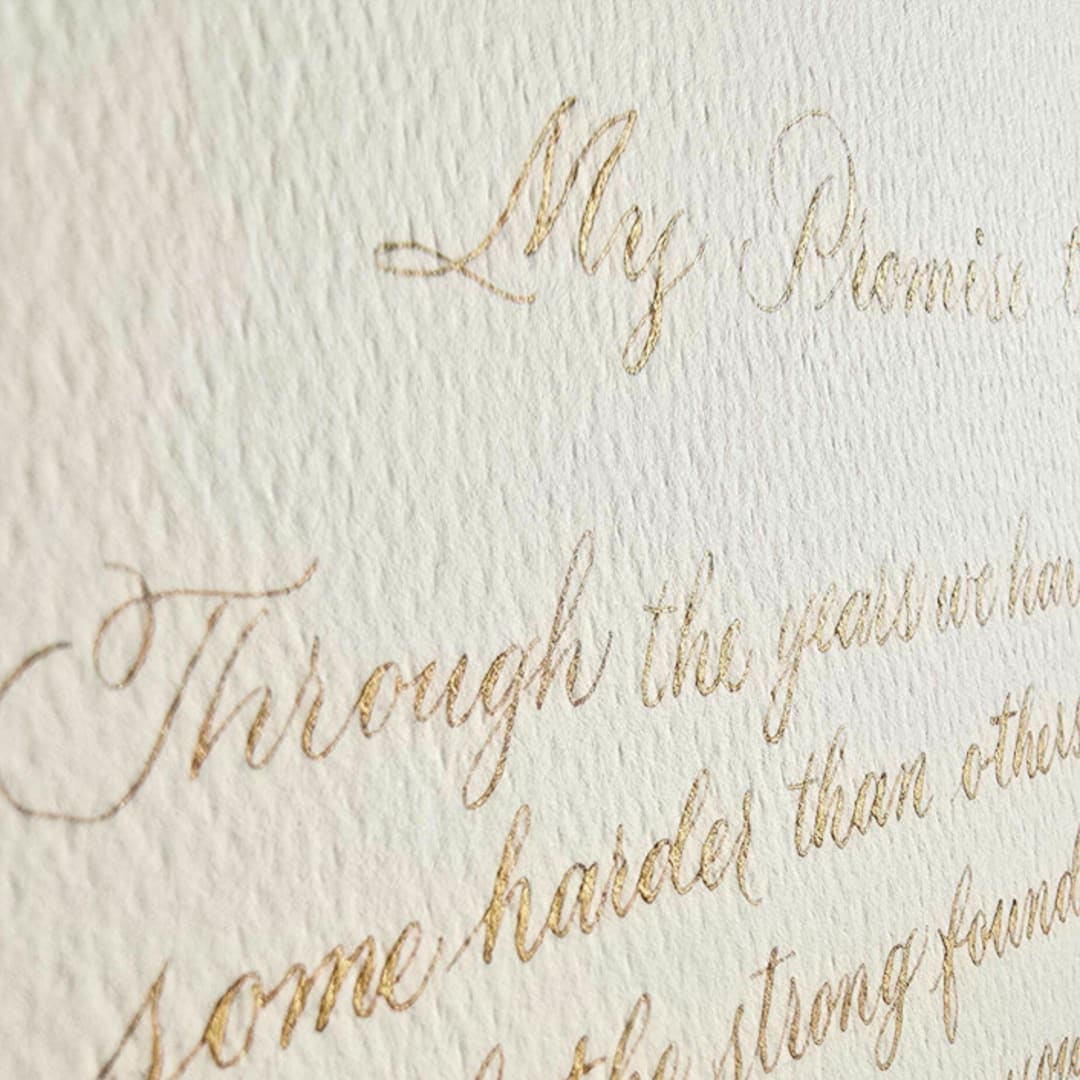 My Promise t
Through the years we hav
some harder than others
the strong found
you